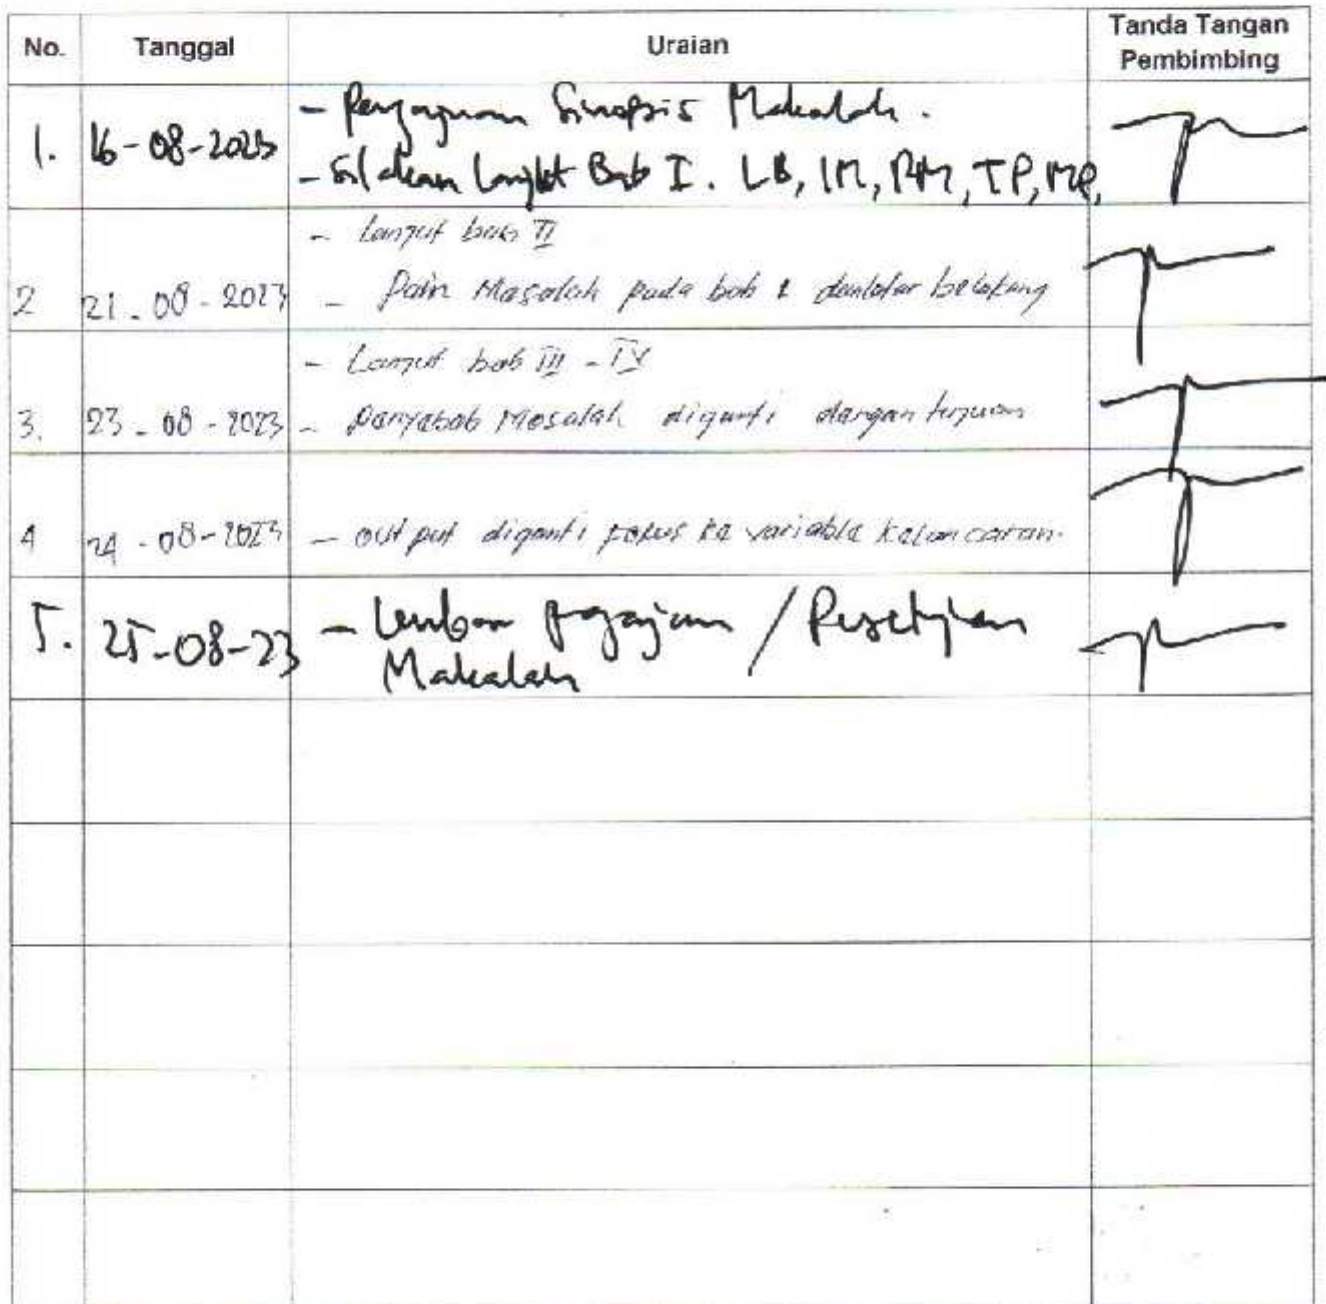 No. Tanggal Uraian Tanda Tangan Pembimbing
1. 16-08-2023 - Pengajuan Sinopsis Makalah.
- Silakan lanjut Bab I. LB, IM, RM, TP, MP,
- Lanjut bab II
2 21-08-2023 - Poin Masalah pada bab 1 dan latar belakang
- Lanjut bab III - IV
3. 23-08-2023 - Penyebab Masalah diganti dengan tujuan
4 24-08-2023 - output diganti fokus ke variable kelancaran.
5. 25-08-23 - Lembar pengajuan / Persetujuan
Makalah